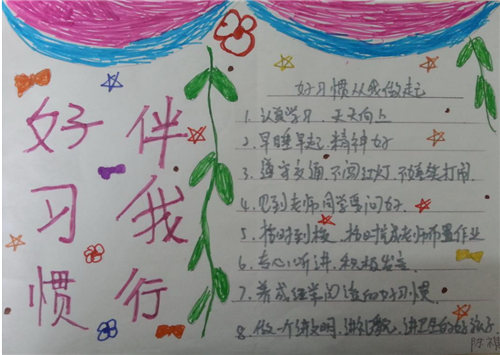 好习惯
伴我行
好习惯从我做起
1. 认真学习、天天向上
2. 早睡早起、精神好
3. 遵守交通、不闯红灯、不追逐打闹
4. 见到老师同学要问好
5. 按时到校、按时完成老师布置作业
6. 专心听讲、积极发言
7. 养成经常阅读的好习惯
8. 做一个讲文明、讲礼貌、讲卫生的好孩子
陈